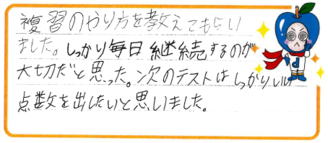 複習のやり方を教えてもらい
ました。しっかり毎日継続するのが
大切だと思った。次のテストはしっかりいい
点数を出したいと思いました。